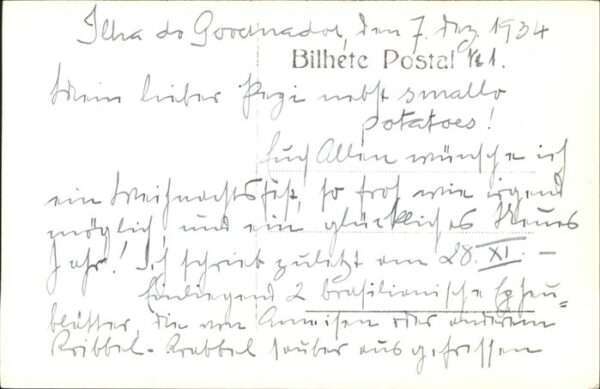 Ilha do Governador, den 7. Dez. 1934
Bilhete Postal № 1.
Mein lieber Pegi nebst smallo
potatoes!
Euch Allen wünsche ich
ein Weihnachtsfest, so froh wie irgend
möglich, und ein glückliches Neues
Jahr! Ich schrieb zuletzt am 28. XI. —
Einliegend 2 brasilianische Epheu=
blätter, die von Ameisen oder anderem
Kribbel-Krabbel sauber ausgefressen